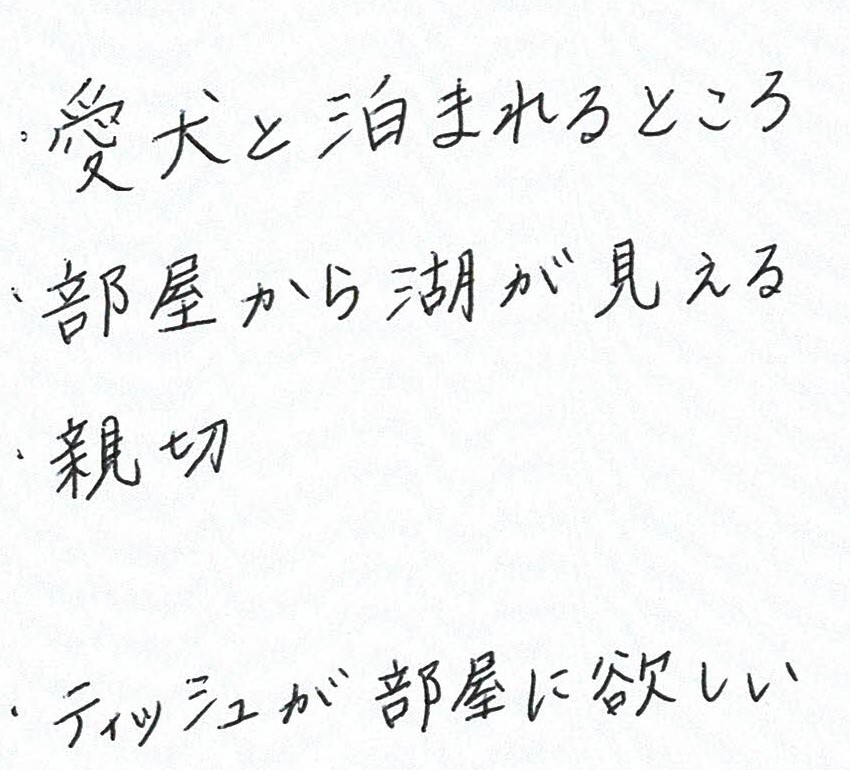 ・愛犬と泊まれるところ
・部屋から湖が見える
・親切
・ティッシュが部屋に欲しい